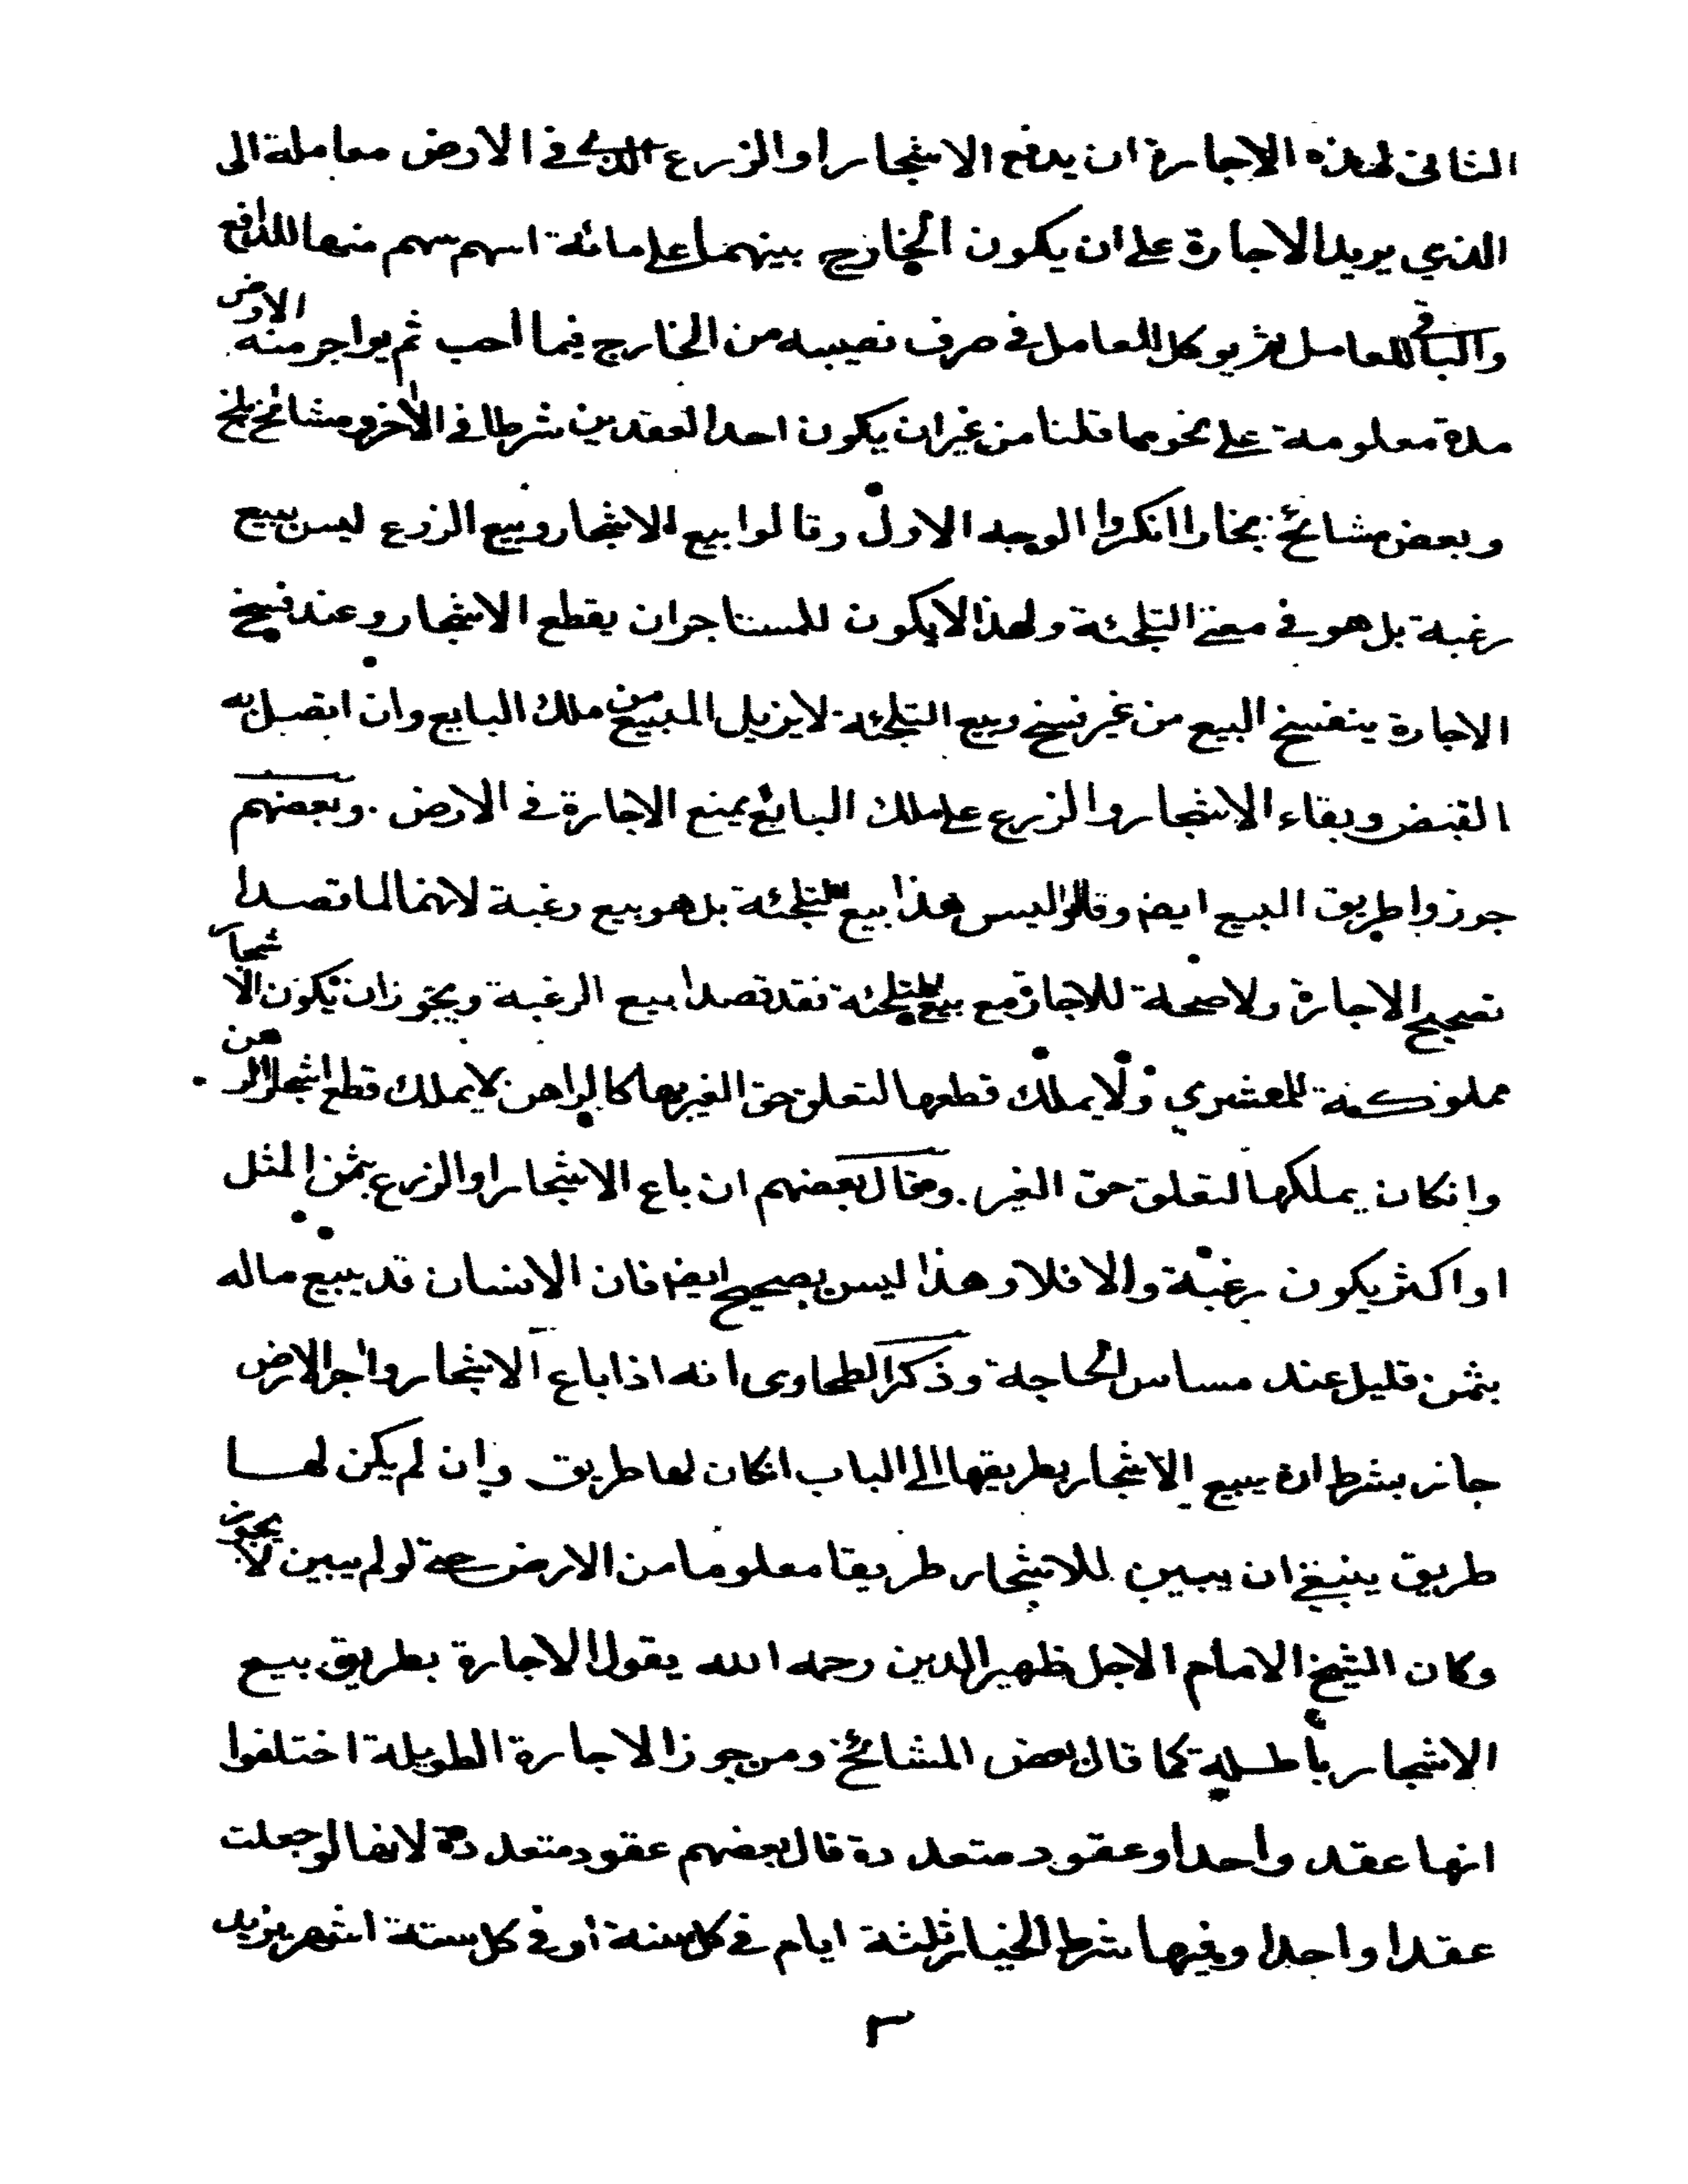 الثانى لهذه الاجارة ان يدفع الاشجار او الزرع الذي في الارض معاملة الى
الذي يريد الاجارة على ان يكون الخارج بينهما على مائة اسهم سهم منها للدافع
والباقي للعامل ثم يوكل العامل في صرف نصيبه من الخارج فيما احب ثم يواجر منه الارض
مدة معلومة على نحو مما قلنا من غير ان يكون احد العقدين شرطا في الاخر ومشائخ بلخ
وبعض مشائخ بخارا انكروا الوجه الاول وقالوا بيع الاشجار وبيع الزرع ليس ببيع
رغبة بل هو في معنى التلجئة ولهذا لا يكون للمستاجر ان يقطع الاشجار وعند فسخ
الاجارة ينفسخ البيع من غير فسخ وبيع التلجئة لا يزيل المبيع من ملك البايع وان اتصل به
القبض وبقاء الاشجار والزرع على ملك البائع يمنع الاجارة في الارض . وبعضهم
جوزوا طريق البيع ايضا وقالوا ليس هذا بيع التلجئة بل هو بيع رغبة لانهما لما قصدا
تصحيح الاجارة ولا صحة للاجارة مع بيع التلجئة فقد قصدا بيع الرغبة ويجوز ان يكون الاشجار
مملوكة للمشتري ولا يملك قطعها لتعلق حق الغير بها كالراهن لا يملك قطع اشجار الرهن
وانكان يملكها لتعلق حق الغير . وقال بعضهم ان باع الاشجار او الزرع بثمن المثل
او اكثر يكون رغبة والا فلا وهذا ليس بصحيح ايضا فان الانسان قد يبيع ماله
بثمن قليل عند مساس الحاجة وذكر الطحاوى انه اذا باع الاشجار واجر الارض
جاز بشرط ان يبيع الاشجار بطريقها الى الباب انكان لها طريق وان لم يكن لها
طريق ينبغي ان يبين للاشجار طريقا معلوما من الارض حتى لو لم يبين لا يجوز
وكان الشيخ الامام الاجل ظهير الدين رحمه الله يقول الاجارة بطريق بيع
الاشجار باطلة كما قال بعض المشائخ ومن جوز الاجارة الطويلة اختلفوا
انها عقد واحد او عقود متعددة قال بعضهم عقود متعددة لانها لو جعلت
عقدا واحدا وفيها شرط الخيار ثلثة ايام في كل سنة او في كل ستة اشهر يزيد
٣